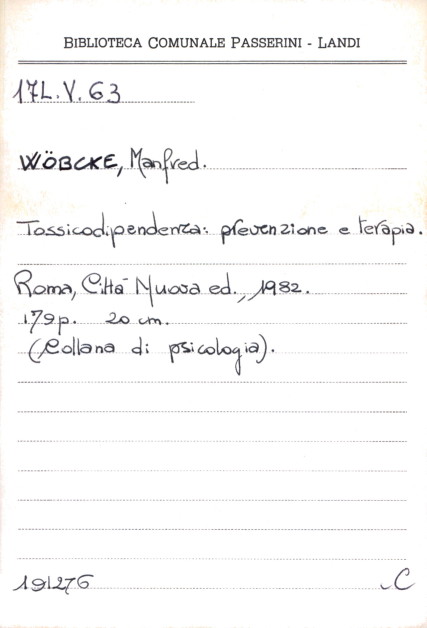 BIBLIOTECA COMUNALE PASSERINI - LANDI
17L.V.63
WÖBCKE, Manfred.
Tossicodipendenza: prevenzione e terapia.
Roma, Città Nuova ed., 1982.
179p. 20 cm.
(Collana di psicologia).
191276 C